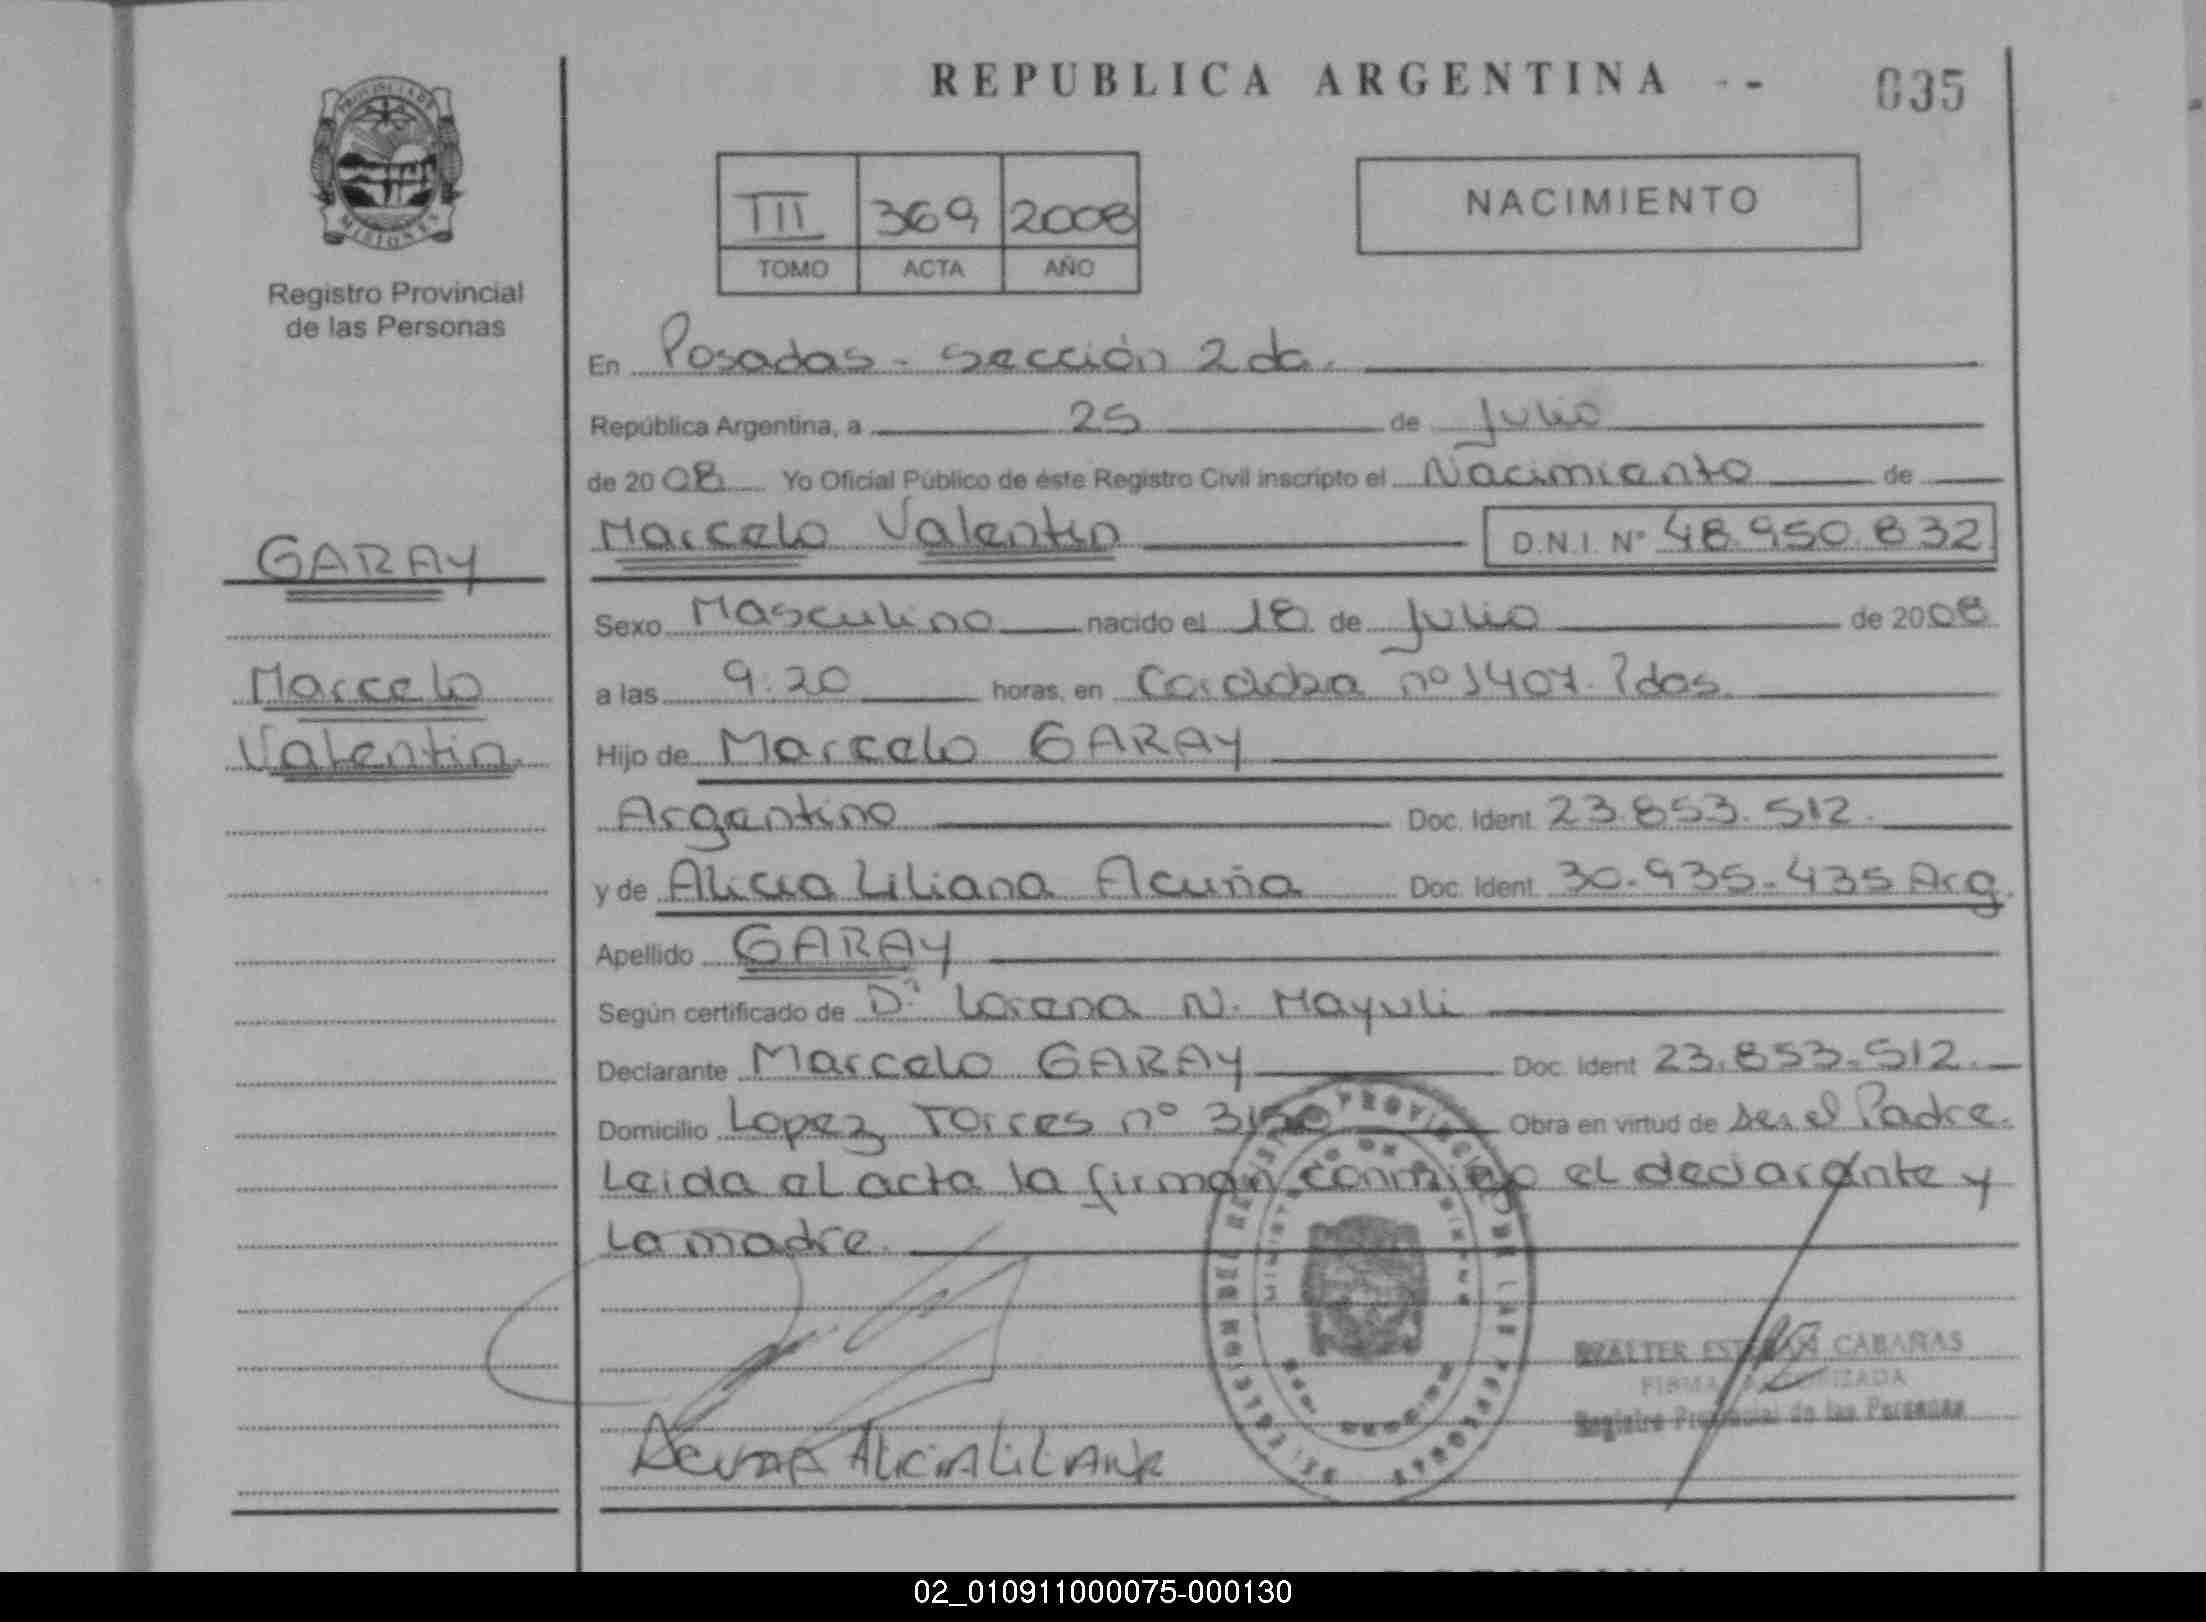 REPUBLICA ARGENTINA -- 035
PROVINCIA DE
MISIONES
Registro Provincial
de las Personas
III 369 2008
TOMO ACTA AÑO
NACIMIENTO
En Posadas - Sección 2da.
República Argentina, a 25 de Julio
de 2008 Yo Oficial Público de éste Registro Civil inscripto el Nacimiento de
Marcelo Valentin D.N.I. Nº 48.950.832
GARAY
Marcelo
Valentin
Sexo Masculino nacido el 18 de Julio de 2008
a las 9.20 horas, en Cordoba nº 1407. Pdas.
Hijo de Marcelo GARAY
Argentino Doc. Ident. 23.853.512.
y de Alicia Liliana Acuña Doc. Ident. 30.935.435 Arg.
Apellido GARAY
Según certificado de Dª Lorena N. Mayuli
Declarante Marcelo GARAY Doc. Ident 23.853.512.
Domicilio Lopez Torres nº Obra en virtud de ser el Padre.
Leida el acta la firman conmigo el declarante y
la madre.
WALTER ESTEBAN CABAÑAS
FIRMA AUTORIZADA
Registro Provincial de las Personas
Acuña Alicia Liliana
02_010911000075-000130